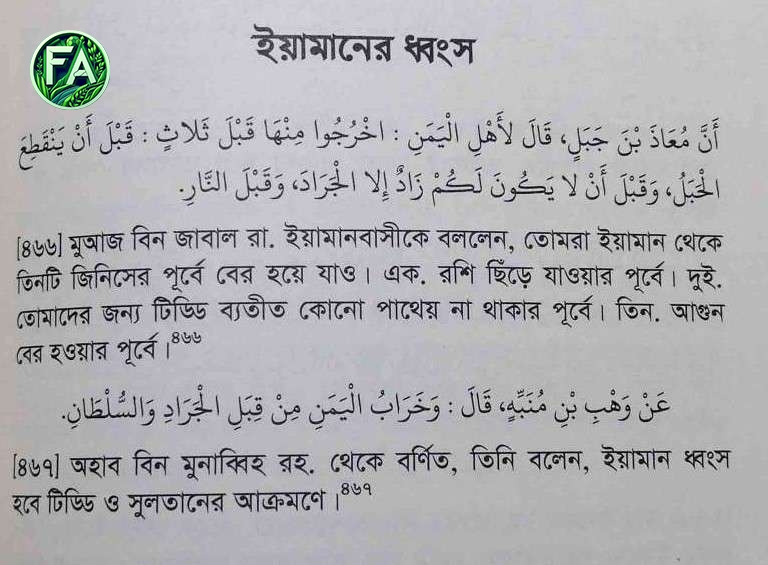 FA
ইয়ামানের ধ্বংস
أَنَّ مُعَاذَ بْنَ جَبَلٍ، قَالَ لأَهْلِ الْيَمَنِ : اخْرُجُوا مِنْهَا قَبْلَ ثَلاثٍ : قَبْلَ أَنْ يَنْقَطِعَ
الْحَبْلُ، وَقَبْلَ أَنْ لا يَكُونَ لَكُمْ زَادٌ إِلا الْجَرَادَ، وَقَبْلَ النَّارِ.
[৪৬৬] মুআজ বিন জাবাল রা. ইয়ামানবাসীকে বললেন, তোমরা ইয়ামান থেকে
তিনটি জিনিসের পূর্বে বের হয়ে যাও। এক. রশি ছিঁড়ে যাওয়ার পূর্বে। দুই.
তোমাদের জন্য টিড্ডি ব্যতীত কোনো পাথেয় না থাকার পূর্বে। তিন. আগুন
বের হওয়ার পূর্বে।৪৬৬
عَنْ وَهْبِ بْنِ مُنَبِّهٍ، قَالَ : وَخَرَابُ الْيَمَنِ مِنْ قِبَلِ الْجَرَادِ وَالسُّلْطَانِ.
[৪৬৭] অহাব বিন মুনাব্বিহ রহ. থেকে বর্ণিত, তিনি বলেন, ইয়ামান ধ্বংস
হবে টিড্ডি ও সুলতানের আক্রমণে।৪৬৭